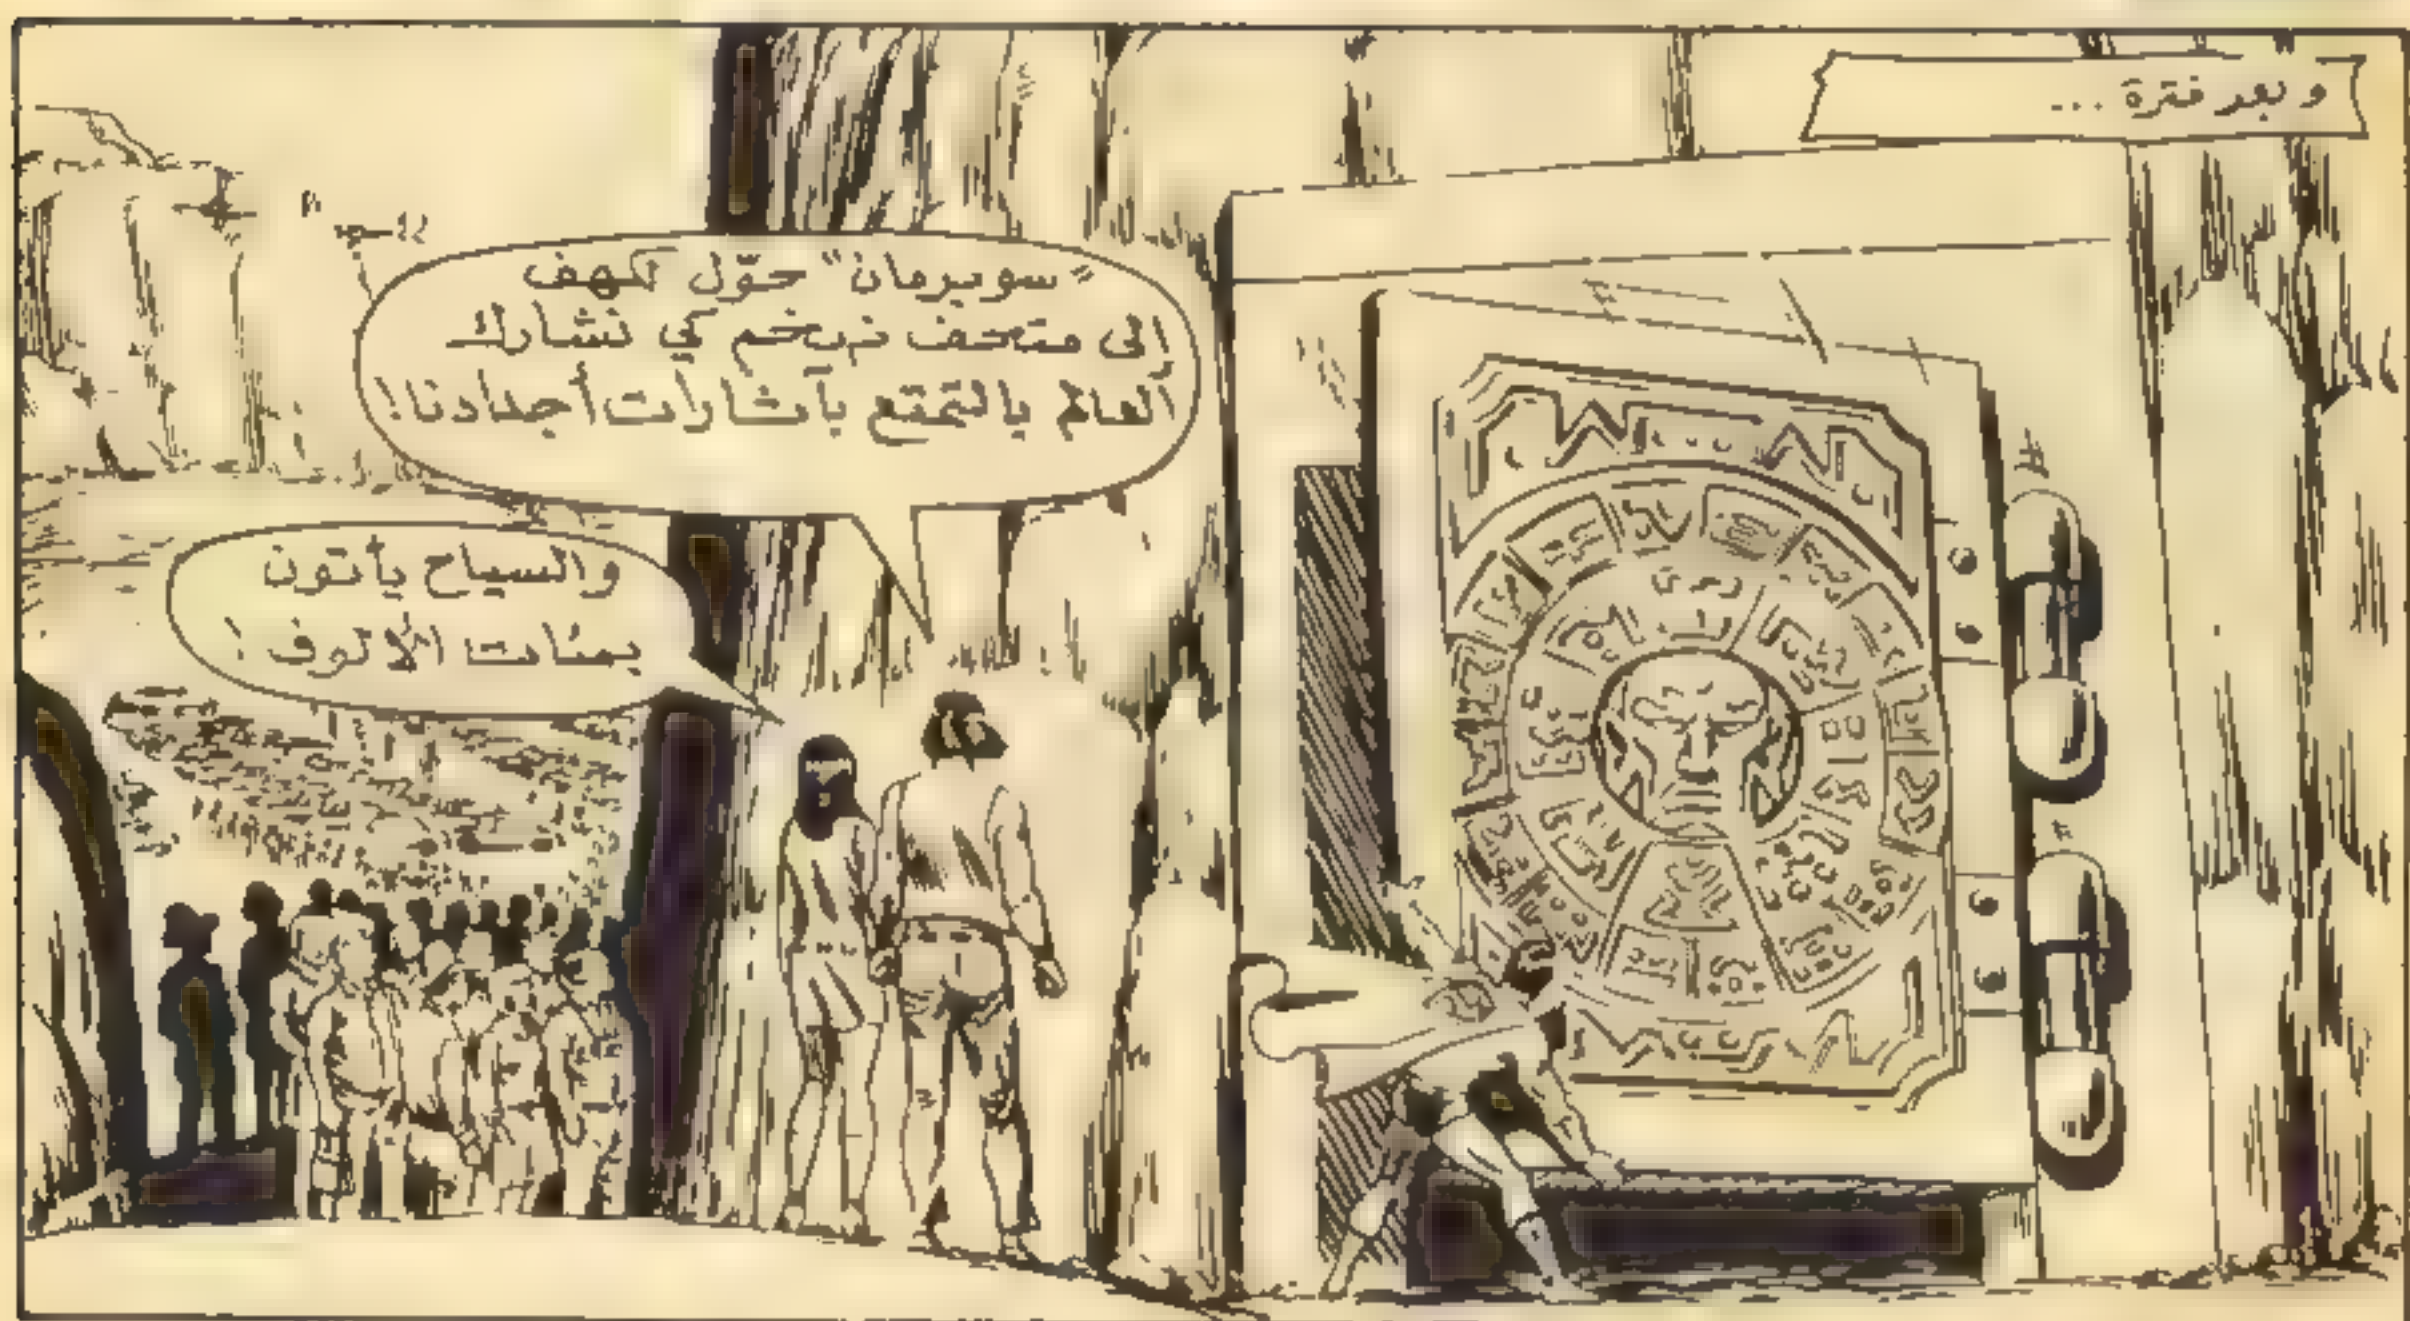 وبعد فترة ...
"سوبرمان" حوّل كهف
إلى متحف ضخم كي نشارك
العالم بالتمتع بآثارات أجدادنا!
والسياح يأتون
بمئات الألوف!